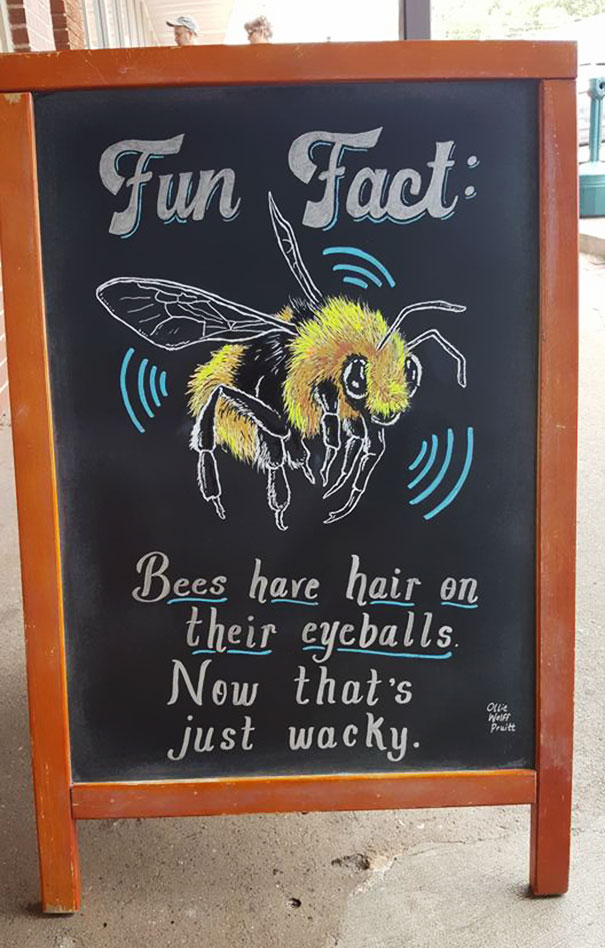 Fun Fact:
Bees have hair on
their eyeballs.
Now that's
just wacky.
Ollie
Wolff
Pruitt